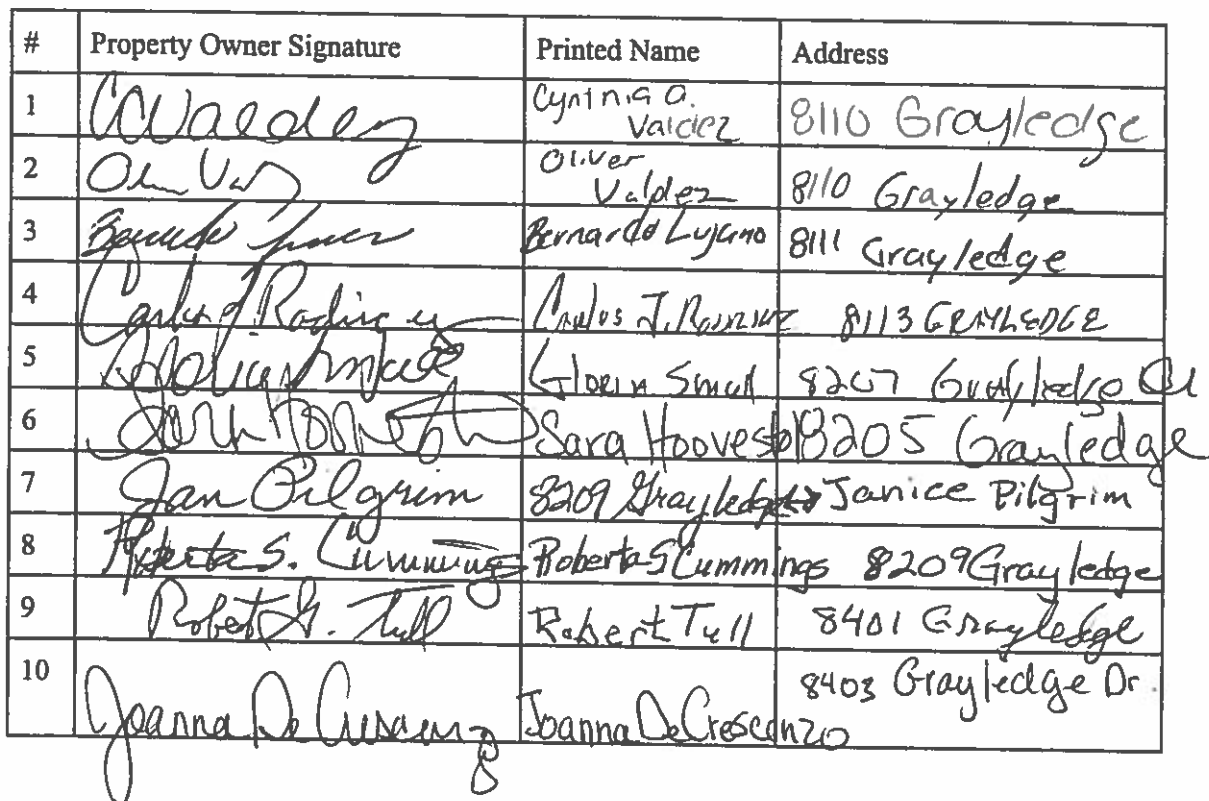 # Property Owner Signature Printed Name Address
1 CVValdez Cynthia A. Valdez 8110 Grayledge
2 Oliver Valdez 8110 Grayledge
3 Bernardo Lujano 8111 Grayledge
4 Carlos J. Rodriguez Carlos J. Rodriguez 8113 GRAYLEDGE
5 Gloria Small 8207 Grayledge
6 Sara 8205 Grayledge
7 Jan Pilgrim 8209 Grayledge Janice Pilgrim
8 Roberta S. Cummings Roberta S Cummings 8209 Grayledge
9 Robert G. Tull Robert Tull 8401 Grayledge
10 Joanna DeCrescenzo Joanna DeCrescenzo 8403 Grayledge Dr